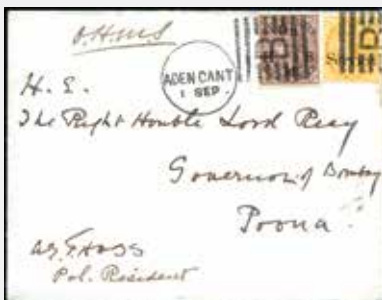 O.H.M.S
ADEN CANT
1 SEP.
B
H. E.
The Right Honble Lord Reay
Governor of Bombay
Poona.
Pol. Resident